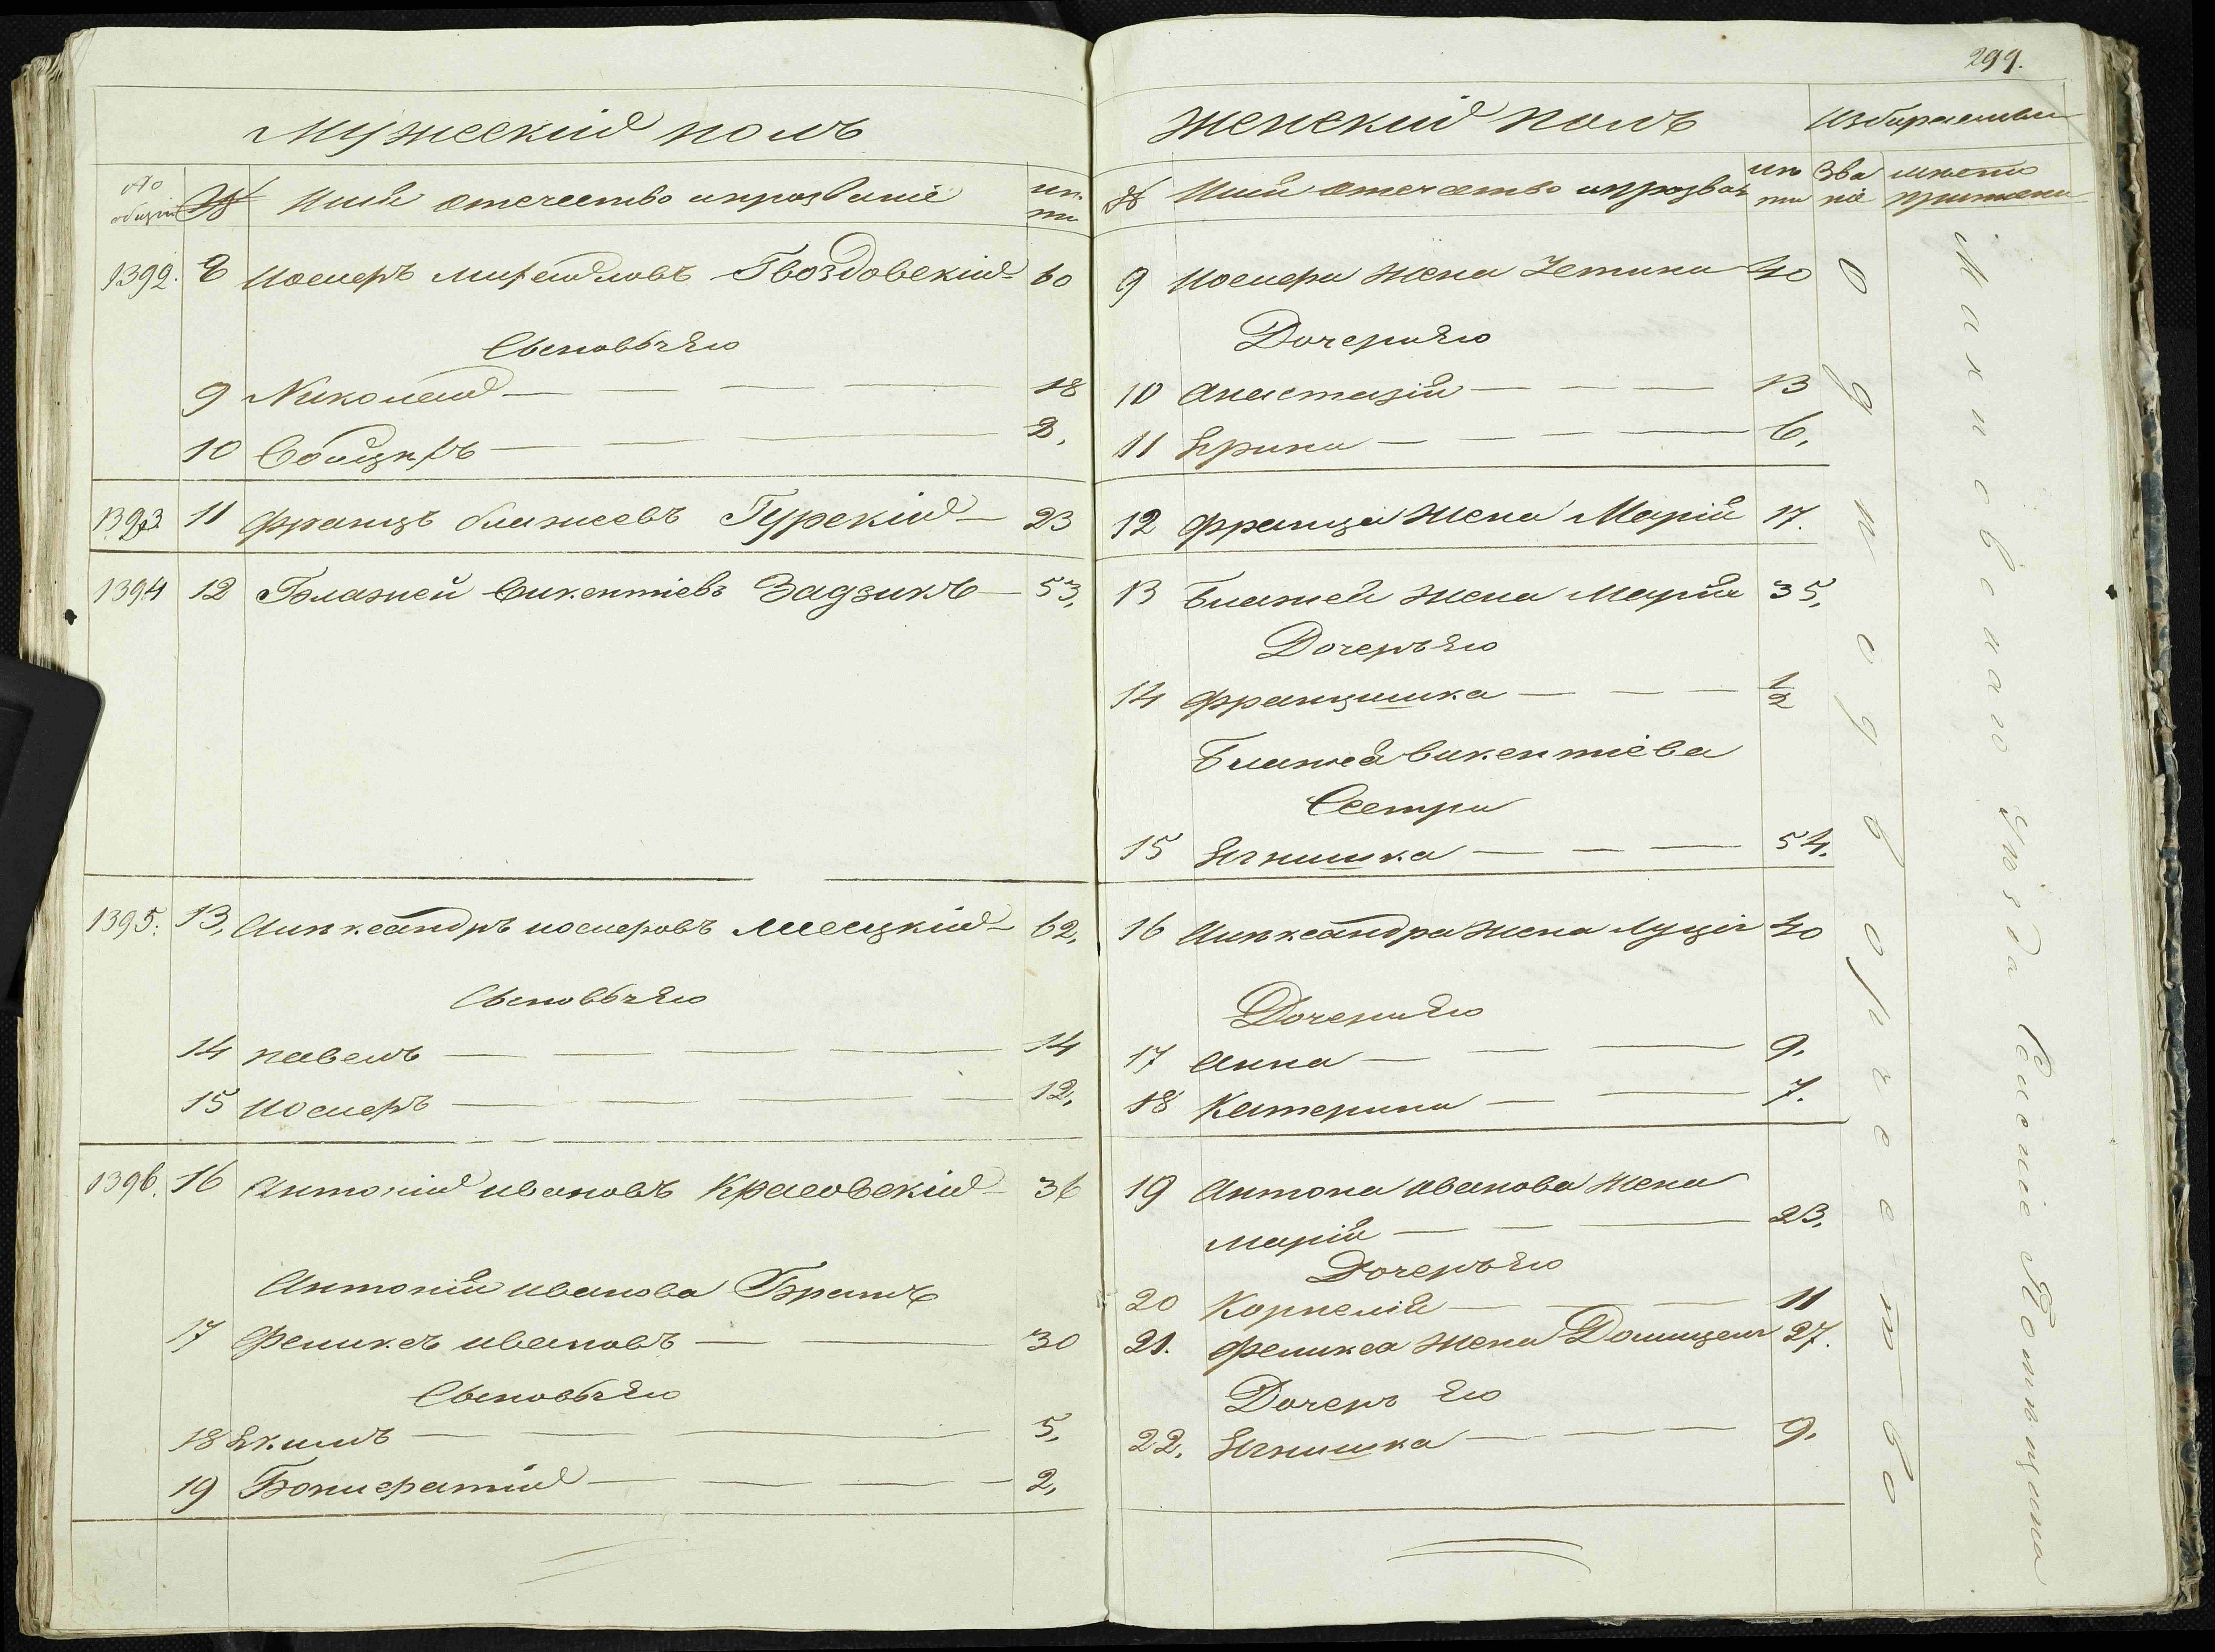 299.
Мужескій полъ
По общій
№
Имя отечество и прозваніе
лѣта
1392. 8 Іосифъ Михайловъ Гвоздовскій 60
Сыновья Его
9 Николай 18
10 2,
1393 11 Францъ блажеевъ Гурскій 23
1394 12 Блажей Викентіевъ Задзикъ 53,
1395. 13, Александръ іосифовъ 62,
Сыновья Его
14 павелъ 14
15 иосифъ 12,
1396. 16 Антоній ивановъ Красовскій 36
Антонія иванова Братъ
17 Феликсъ ивановъ 30
Сыновья Его
18 Якимъ 5,
19 Бонифатій 2,
Женскій полъ
Избираемыи
№ Имя отечество и прозва
лѣта
Зва ніе
мѣсто приписки
9 Иосифа жена 40
Дочери Его
10 Анастазія 13
11 Ярина 6,
12 Франца жена Марія 17.
13 Блажея жена Марія 35,
Дочеръ Его
14 Францишка 1/2
Блажея викентіева
Сестра
15 Ягнишка 54.
16 Александра жена Луція 40
Дочери Его
17 Анна 9.
18 Катерина 7.
19 Антона иванова жена
марія 23,
Дочеръ Его
20 Корнелія 11
21. Феликса жена Домицеля 27.
Дочеръ Его
22. Ягнишка 9.
Однодворчество
Махновскаго Уѣзда Селеніе